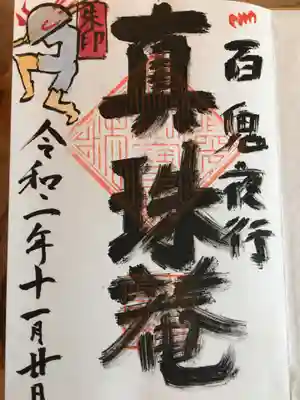 百鬼夜行
真珠菴
令和二年十一月廿日
朱印